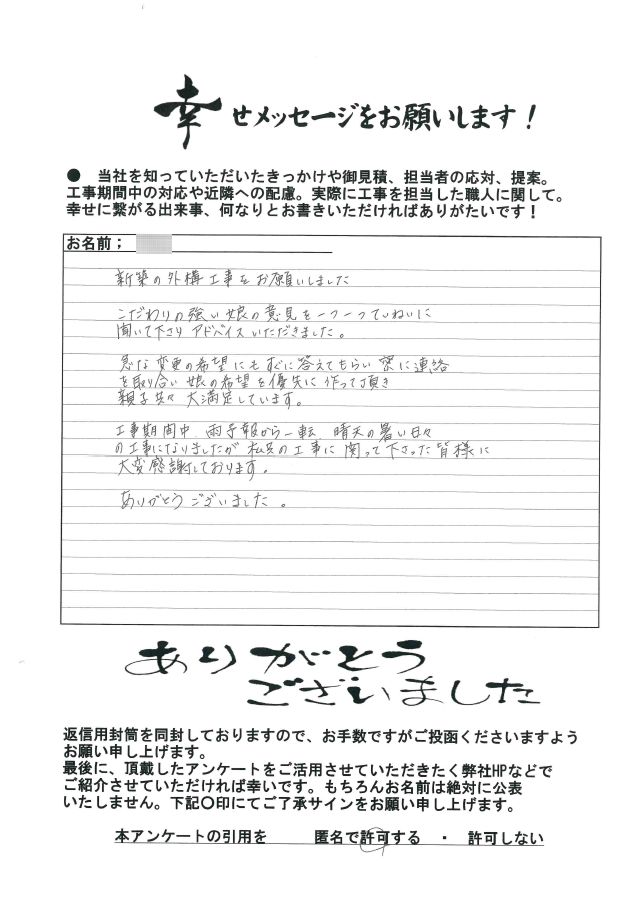 幸せメッセージをお願いします！
● 当社を知っていただいたきっかけや御見積、担当者の応対、提案。
工事期間中の対応や近隣への配慮。実際に工事を担当した職人に関して。
幸せに繋がる出来事、何なりとお書きいただければありがたいです！
お名前；
新築の外構工事をお願いしました
こだわりの強い娘の意見を一つ一つていねいに
聞いて下さり アドバイスいただきました。
急な変更の希望にもすぐに答えてもらい 密に連絡
を取り合い 娘の希望を優先に作って頂き
親子共々 大満足しています。
工事期間中 雨予報から一転 晴天の暑い日々
の工事になりましたが 私共の工事に関って下さった皆様に
大変感謝しております。
ありがとうございました。
ありがとう
ございました
返信用封筒を同封しておりますので、お手数ですがご投函くださいますよう
お願い申し上げます。
最後に、頂戴したアンケートをご活用させていただきたく弊社HPなどで
ご紹介させていただければ幸いです。もちろんお名前は絶対に公表
いたしません。下記〇印にてご了承サインをお願い申し上げます。
本アンケートの引用を 匿名で許可する ・ 許可しない